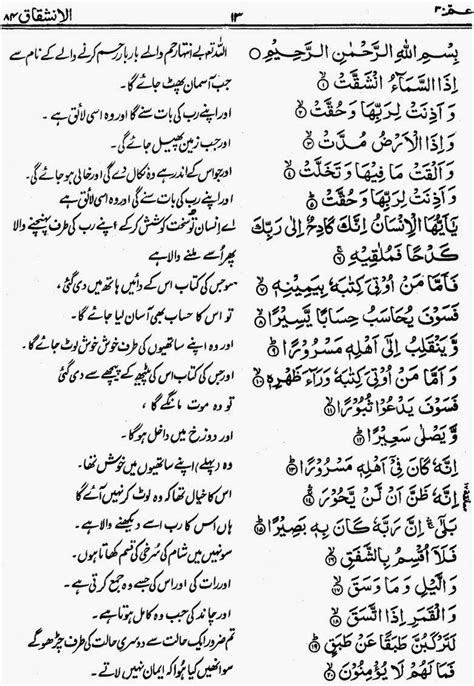 عمّ ٣٠
١٣
الانشقاق ٨٤
بِسْمِ اللهِ الرَّحْمٰنِ الرَّحِيْمِ
اِذَا السَّمَآءُ انْشَقَّتْ ۙ۱
وَ اَذِنَتْ لِرَبِّهَا وَحُقَّتْ ۙ۲
وَ اِذَا الْاَرْضُ مُدَّتْ ۙ۳
وَ اَلْقَتْ مَا فِيْهَا وَتَخَلَّتْ ۙ۴
وَ اَذِنَتْ لِرَبِّهَا وَحُقَّتْ ؕ۵
يٰۤاَيُّهَا الْاِنْسَانُ اِنَّكَ كَادِحٌ اِلٰى رَبِّكَ
كَدْحًا فَمُلٰقِيْهِ ۚ۶
فَاَمَّا مَنْ اُوْتِىَ كِتٰبَهٗ بِيَمِيْنِهٖ ۙ۷
فَسَوْفَ يُحَاسَبُ حِسَابًا يَّسِيْرًا ۙ۸
وَّ يَنْقَلِبُ اِلٰٓى اَهْلِهٖ مَسْرُوْرًا ؕ۹
وَ اَمَّا مَنْ اُوْتِىَ كِتٰبَهٗ وَرَآءَ ظَهْرِهٖ ۙ۱۰
فَسَوْفَ يَدْعُوْا ثُبُوْرًا ۙ۱۱
وَّ يَصْلٰى سَعِيْرًا ؕ۱۲
اِنَّهٗ كَانَ فِىْٓ اَهْلِهٖ مَسْرُوْرًا ؕ۱۳
اِنَّهٗ ظَنَّ اَنْ لَّنْ يَّحُوْرَ ۚۛ۱۴
بَلٰٓى ۚۛ اِنَّ رَبَّهٗ كَانَ بِهٖ بَصِيْرًا ؕ۱۵
فَلَاۤ اُقْسِمُ بِالشَّفَقِ ۙ۱۶
وَ الَّيْلِ وَ مَا وَسَقَ ۙ۱۷
وَ الْقَمَرِ اِذَا اتَّسَقَ ۙ۱۸
لَتَرْكَبُنَّ طَبَقًا عَنْ طَبَقٍ ؕ۱۹
فَمَا لَهُمْ لَا يُؤْمِنُوْنَ ۙ۲۰
اللہ تعالیٰ بے انتہا رحم والے بار بار رحم کرنے والے کے نام سے
جب آسمان پھٹ جائے گا۔
اور اپنے رب کی بات سنے گا اور وہ اسی لائق ہے۔
اور جب زمین پھیل جائے گی۔
اور جو اس کے اندر ہے وہ نکال دے گی اور خالی ہو جائے گی۔
اور اپنے رب کی بات سنے گی اور وہ اسی لائق ہے۔
اے انسان تو سخت کوشش کر کے اپنے رب کی طرف پہنچنے والا
پھر اُسے ملنے والا ہے
سو جس کی کتاب اس کے دائیں ہاتھ میں دی گئی،
تو اس کا حساب بھی آسان لیا جائے گا۔
اور اپنے ساتھیوں کی طرف خوش خوش لوٹ جائے گا۔
اور جس کی کتاب اس کی پیٹھ کے پیچھے سے دی گئی
تو وہ موت مانگے گا،
اور دوزخ میں داخل ہو گا۔
وہ (پہلے) اپنے ساتھیوں میں خوش تھا۔
اس کا خیال تھا کہ وہ لوٹ کر نہیں آئے گا
ہاں اس کا رب اسے دیکھنے والا ہے۔
سو نہیں میں شام کی سُرخی کی قسم کھاتا ہوں۔
اور رات کی اور اس کی جسے وہ جمع کرتی ہے۔
اور چاند کی جب وہ کامل ہوتا ہے۔
تم ضرور ایک حالت سے دوسری حالت کی طرف چڑھو گے
سو انھیں کیا ہُوا کہ ایمان نہیں لاتے۔